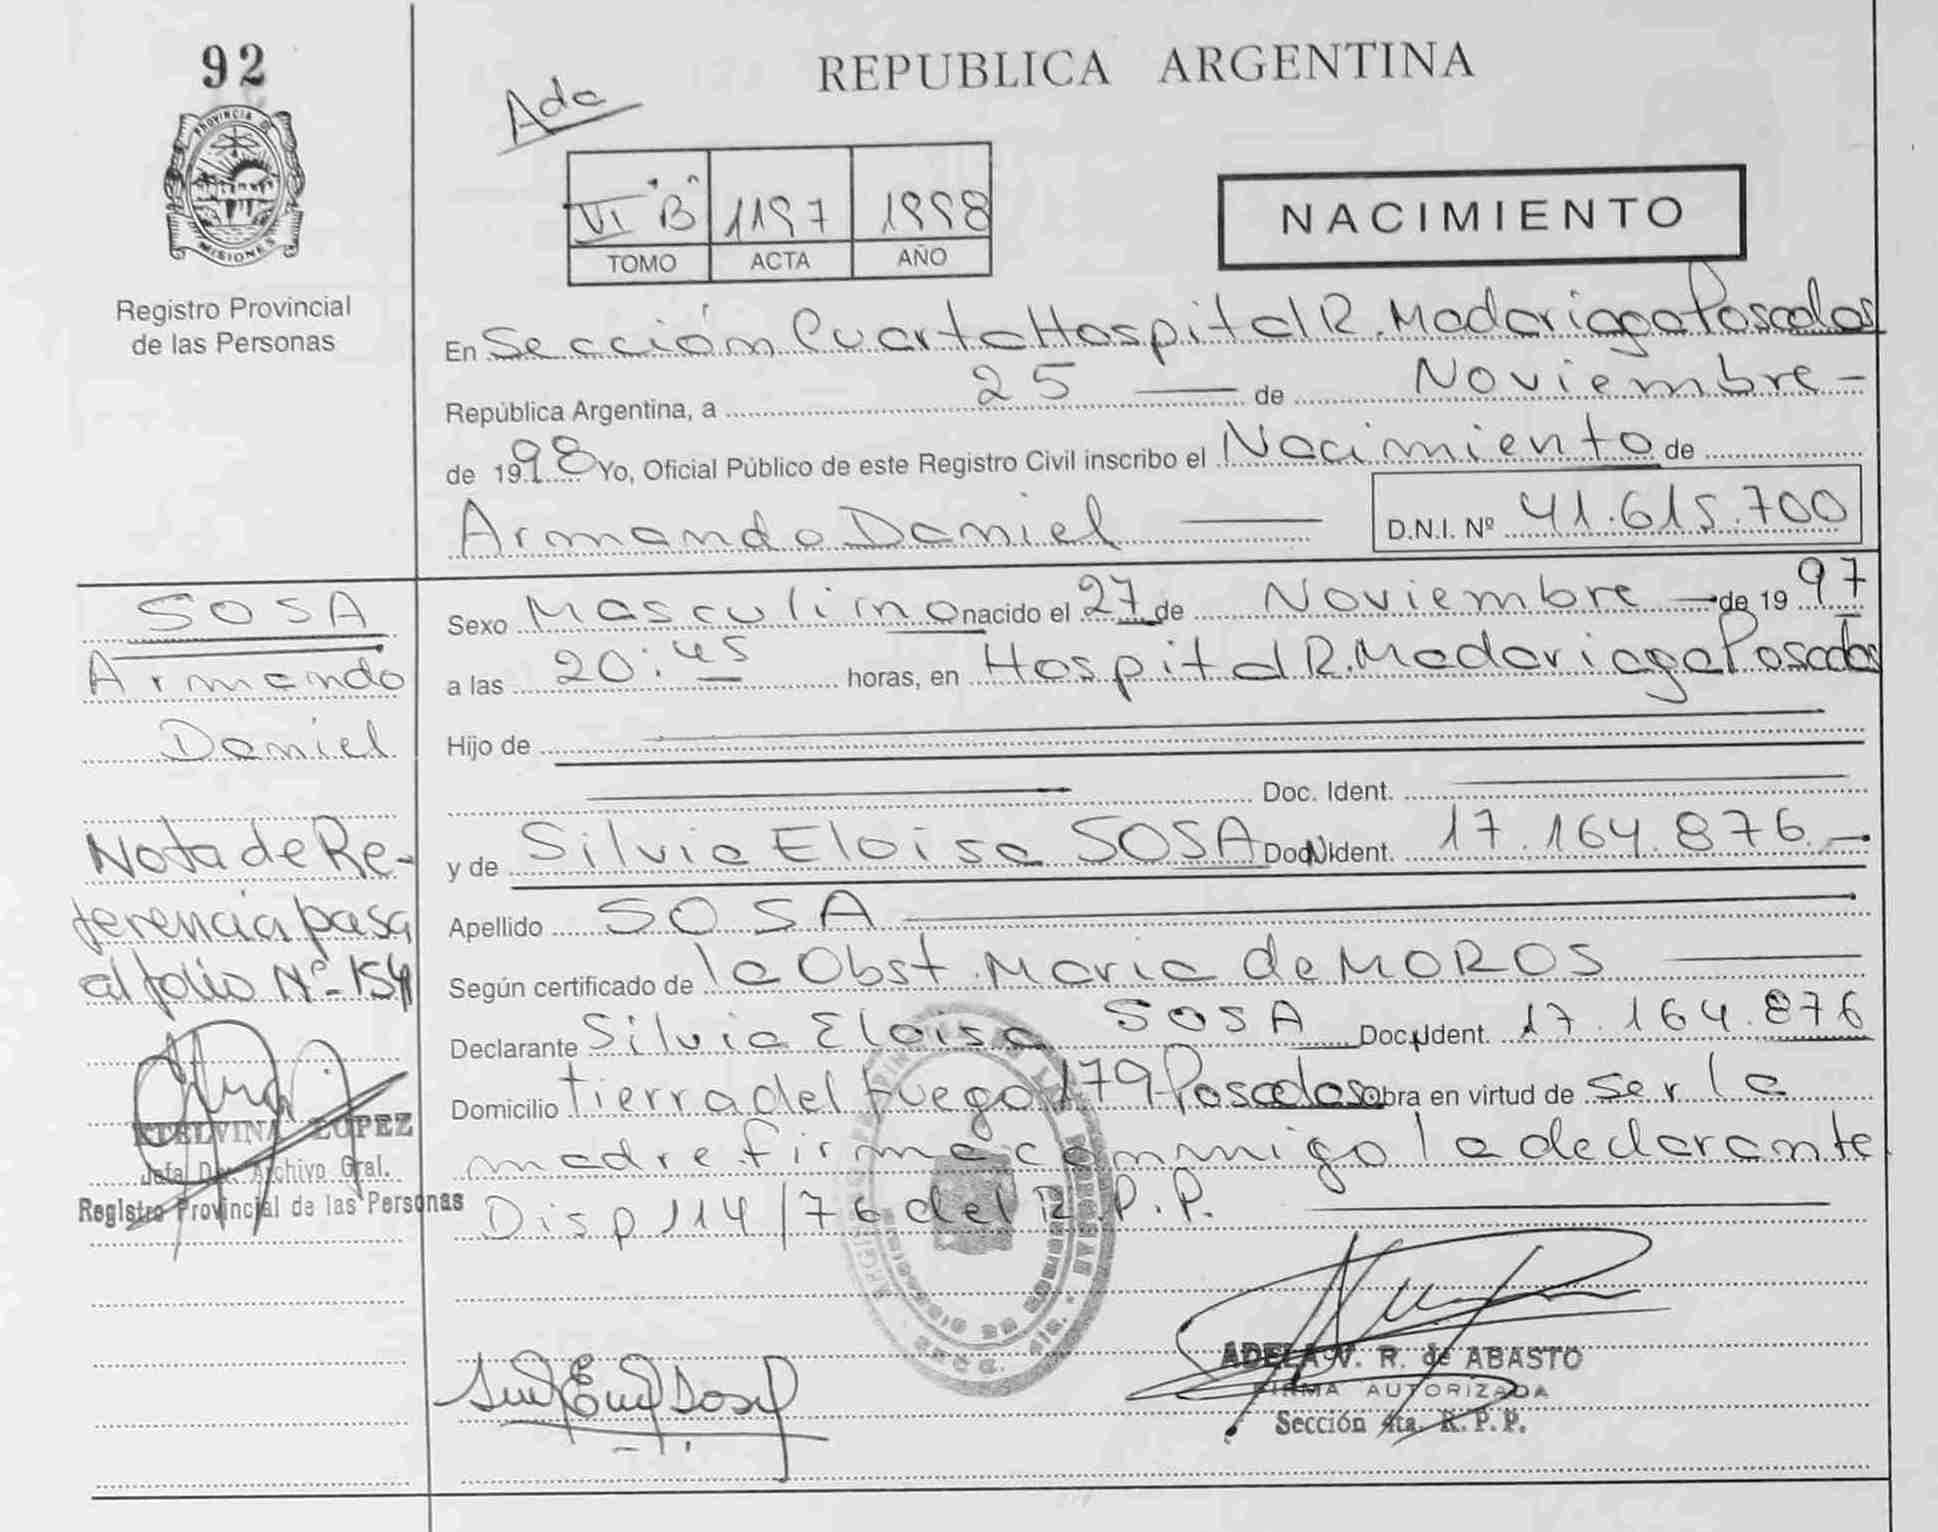 92
PROVINCIA DE
MISIONES
Registro Provincial
de las Personas
REPUBLICA ARGENTINA
Ada
VI "B" 1197 1998
TOMO ACTA AÑO
NACIMIENTO
En Sección Cuarta Hospital R. Madariaga Posadas
República Argentina, a 25 de Noviembre
de 1998 Yo, Oficial Público de este Registro Civil inscribo el Nacimiento de
Armando Daniel D.N.I. Nº 41.615.700
SOSA
Armando
Daniel
Nota de Re-
ferencia pasa
al folio Nº 154
ETELVINA LOPEZ
Jefa Dpto. Archivo Gral.
Registro Provincial de las Personas
Sexo Masculino nacido el 27 de Noviembre de 1997
a las 20:45 horas, en Hospital R. Madariaga Posadas
Hijo de
Doc. Ident.
y de Silvia Eloisa SOSA Doc. Ident. 17.164.876
Apellido SOSA
Según certificado de la Obst. Maria de MOROS
Declarante Silvia Eloisa SOSA Doc. Ident. 17.164.876
Domicilio tierra del fuego 179 Posadas obra en virtud de ser la
madre firma conmigo la declarante
Disp 114/76 del R.P.P.
ADELA V. R. de ABASTO
FIRMA AUTORIZADA
Sección 4ta. R.P.P.